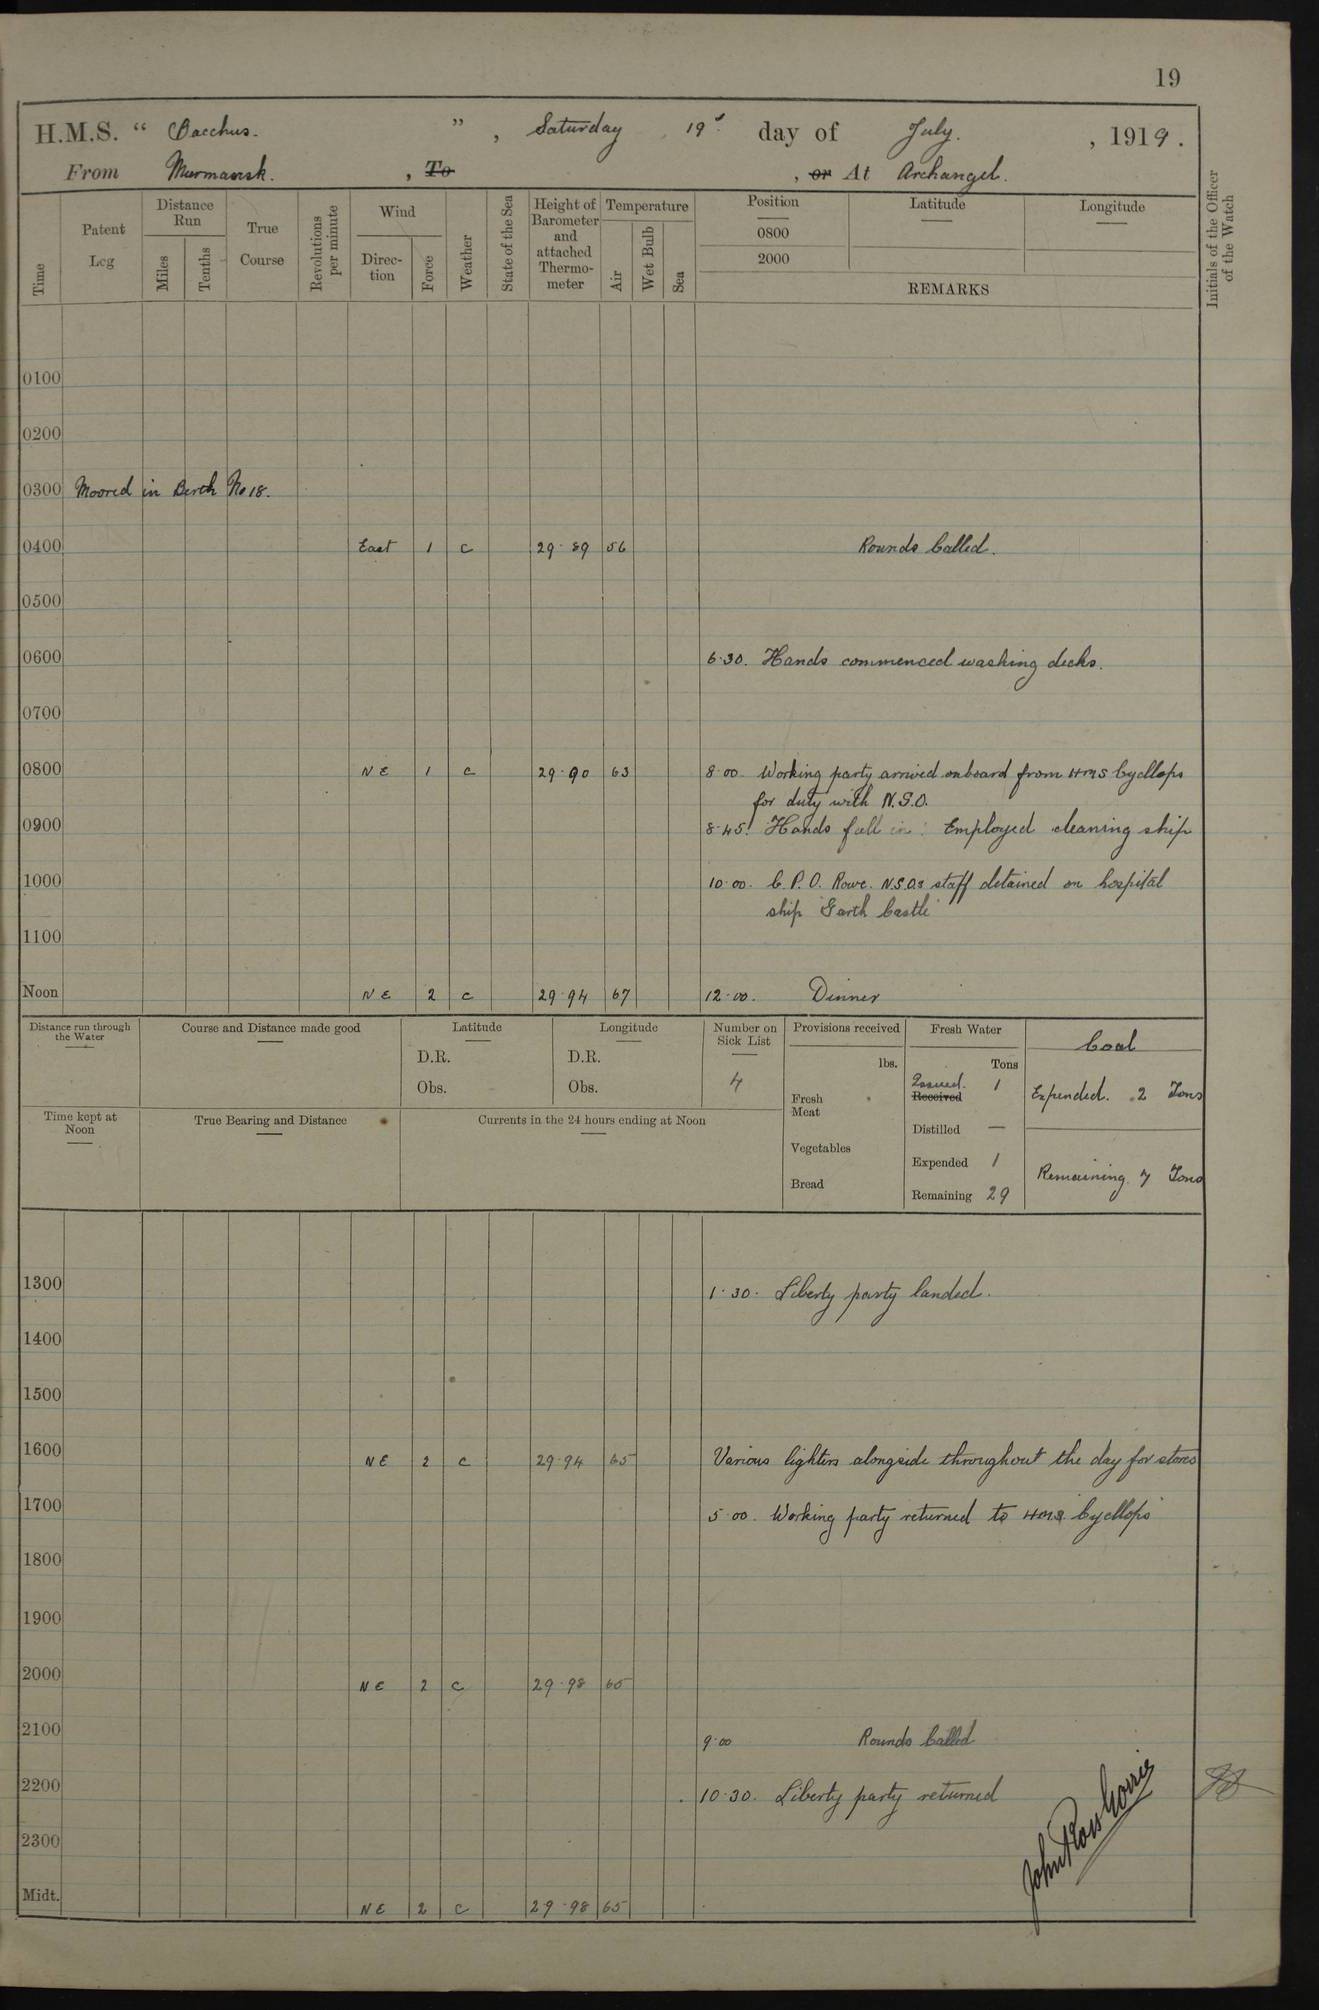 19
H.M.S. “ Bacchus. ” , Saturday 19th day of July. , 1919.
From Murmansk. , To , or At Archangel.
Time
Patent Log
Distance Run
Miles
Tenths
True Course
Revolutions per minute
Wind
Direction
Force
Weather
State of the Sea
Height of Barometer and attached Thermometer
Temperature
Air
Wet Bulb
Sea
Position
0800
2000
Latitude
Longitude
REMARKS
Initials of the Officer of the Watch
0100
0200
0300 Moored in Berth No 18.
0400 East 1 c 29·89 56 Rounds Called.
0500
0600 6·30. Hands commenced washing decks.
0700
0800 NE 1 c 29·90 63 8·00. Working party arrived onboard from HMS Cycllops
for duty with N.S.O.
0900 8·45. Hands fall in: Employed cleaning ship
1000 10·00. C.P.O. Rowe. N.S.O.s staff detained on hospital
ship "Garth Castle"
1100
Noon NE 2 c 29·94 67 12·00. Dinner
Distance run through the Water
Course and Distance made good
Latitude
D.R.
Obs.
Longitude
D.R.
Obs.
Number on Sick List
4
Provisions received
lbs.
Fresh Meat
Vegetables
Bread
Fresh Water
Tons
Issued. 1
Received
Distilled —
Expended 1
Remaining 29
Coal
Expended. 2 Tons
Remaining. 7 Tons
Time kept at Noon
True Bearing and Distance
Currents in the 24 hours ending at Noon
1300 1·30. Liberty party landed.
1400
1500
1600 NE 2 c 29·94 65 Various lighters alongside throughout the day for stores
1700 5·00. Working party returned to HMS. Cycllops"
1800
1900
2000 NE 2 c 29·98 65
2100 9·00 Rounds Called
2200 10·30. Liberty party returned
2300
John Ross Gorrie
Midt. NE 2 c 29·98 65